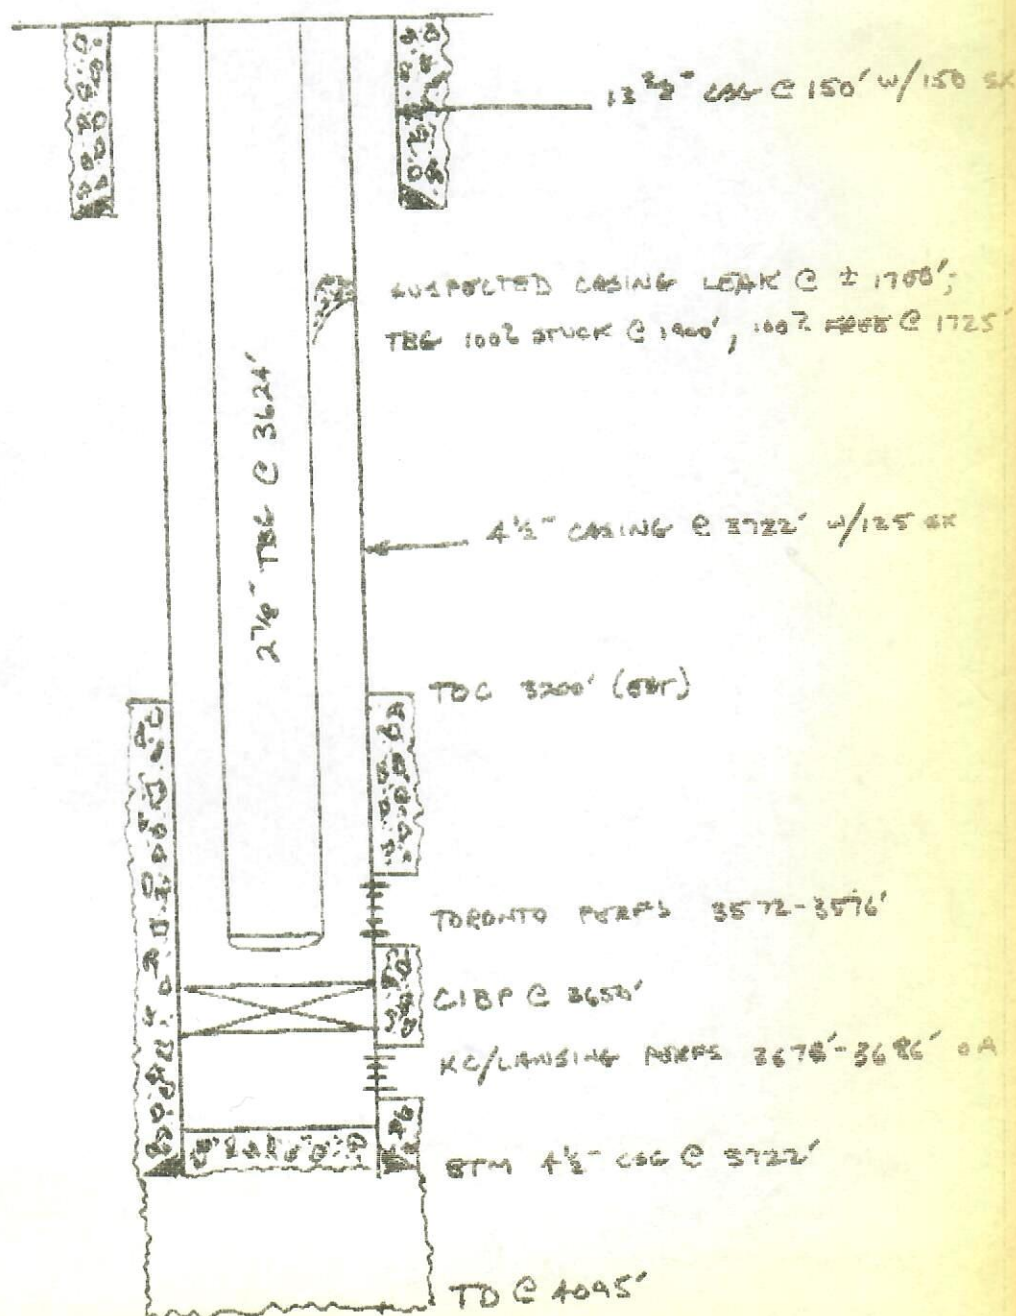 13 3/8" CSG @ 150' W/150 SX
SUSPECTED CASING LEAK @ ± 1700';
TBG 100% STUCK @ 1900', 100% FREE @ 1725'
2 7/8" TBG @ 3624'
4 1/2" CASING @ 3722' W/125 SX
TOC 3200' (EST)
TORONTO PERFS 3572-3576'
CIBP @ 3650'
KC/LANSING PERFS 3678'-3686' OA
BTM 4 1/2" CSG @ 3722'
TD @ 4095'